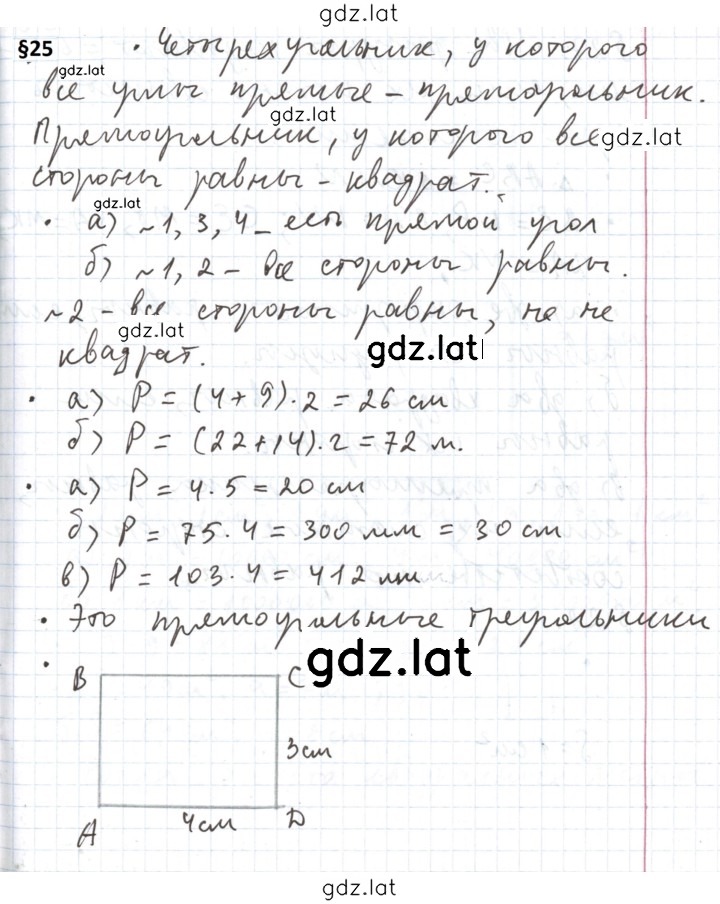 gdz.lat
§25 · Четырехугольник, у которого
gdz.lat
все углы прямые – прямоугольник.
gdz.lat
Прямоугольник, у которого все
gdz.lat
стороны равны – квадрат.
gdz.lat
· а) ~1, 3, 4 – есть прямой угол
б) ~1, 2 – все стороны равны.
~2 – все стороны равны, но не
gdz.lat
квадрат.
gdz.lat
· а) P = (4+9)·2 = 26 см
б) P = (22+14)·2 = 72 м.
· а) P = 4·5 = 20 см
б) P = 75·4 = 300 мм = 30 см
в) P = 103·4 = 412 мм
· Это прямоугольные треугольники
gdz.lat
· B C
3см
4см
A D
gdz.lat